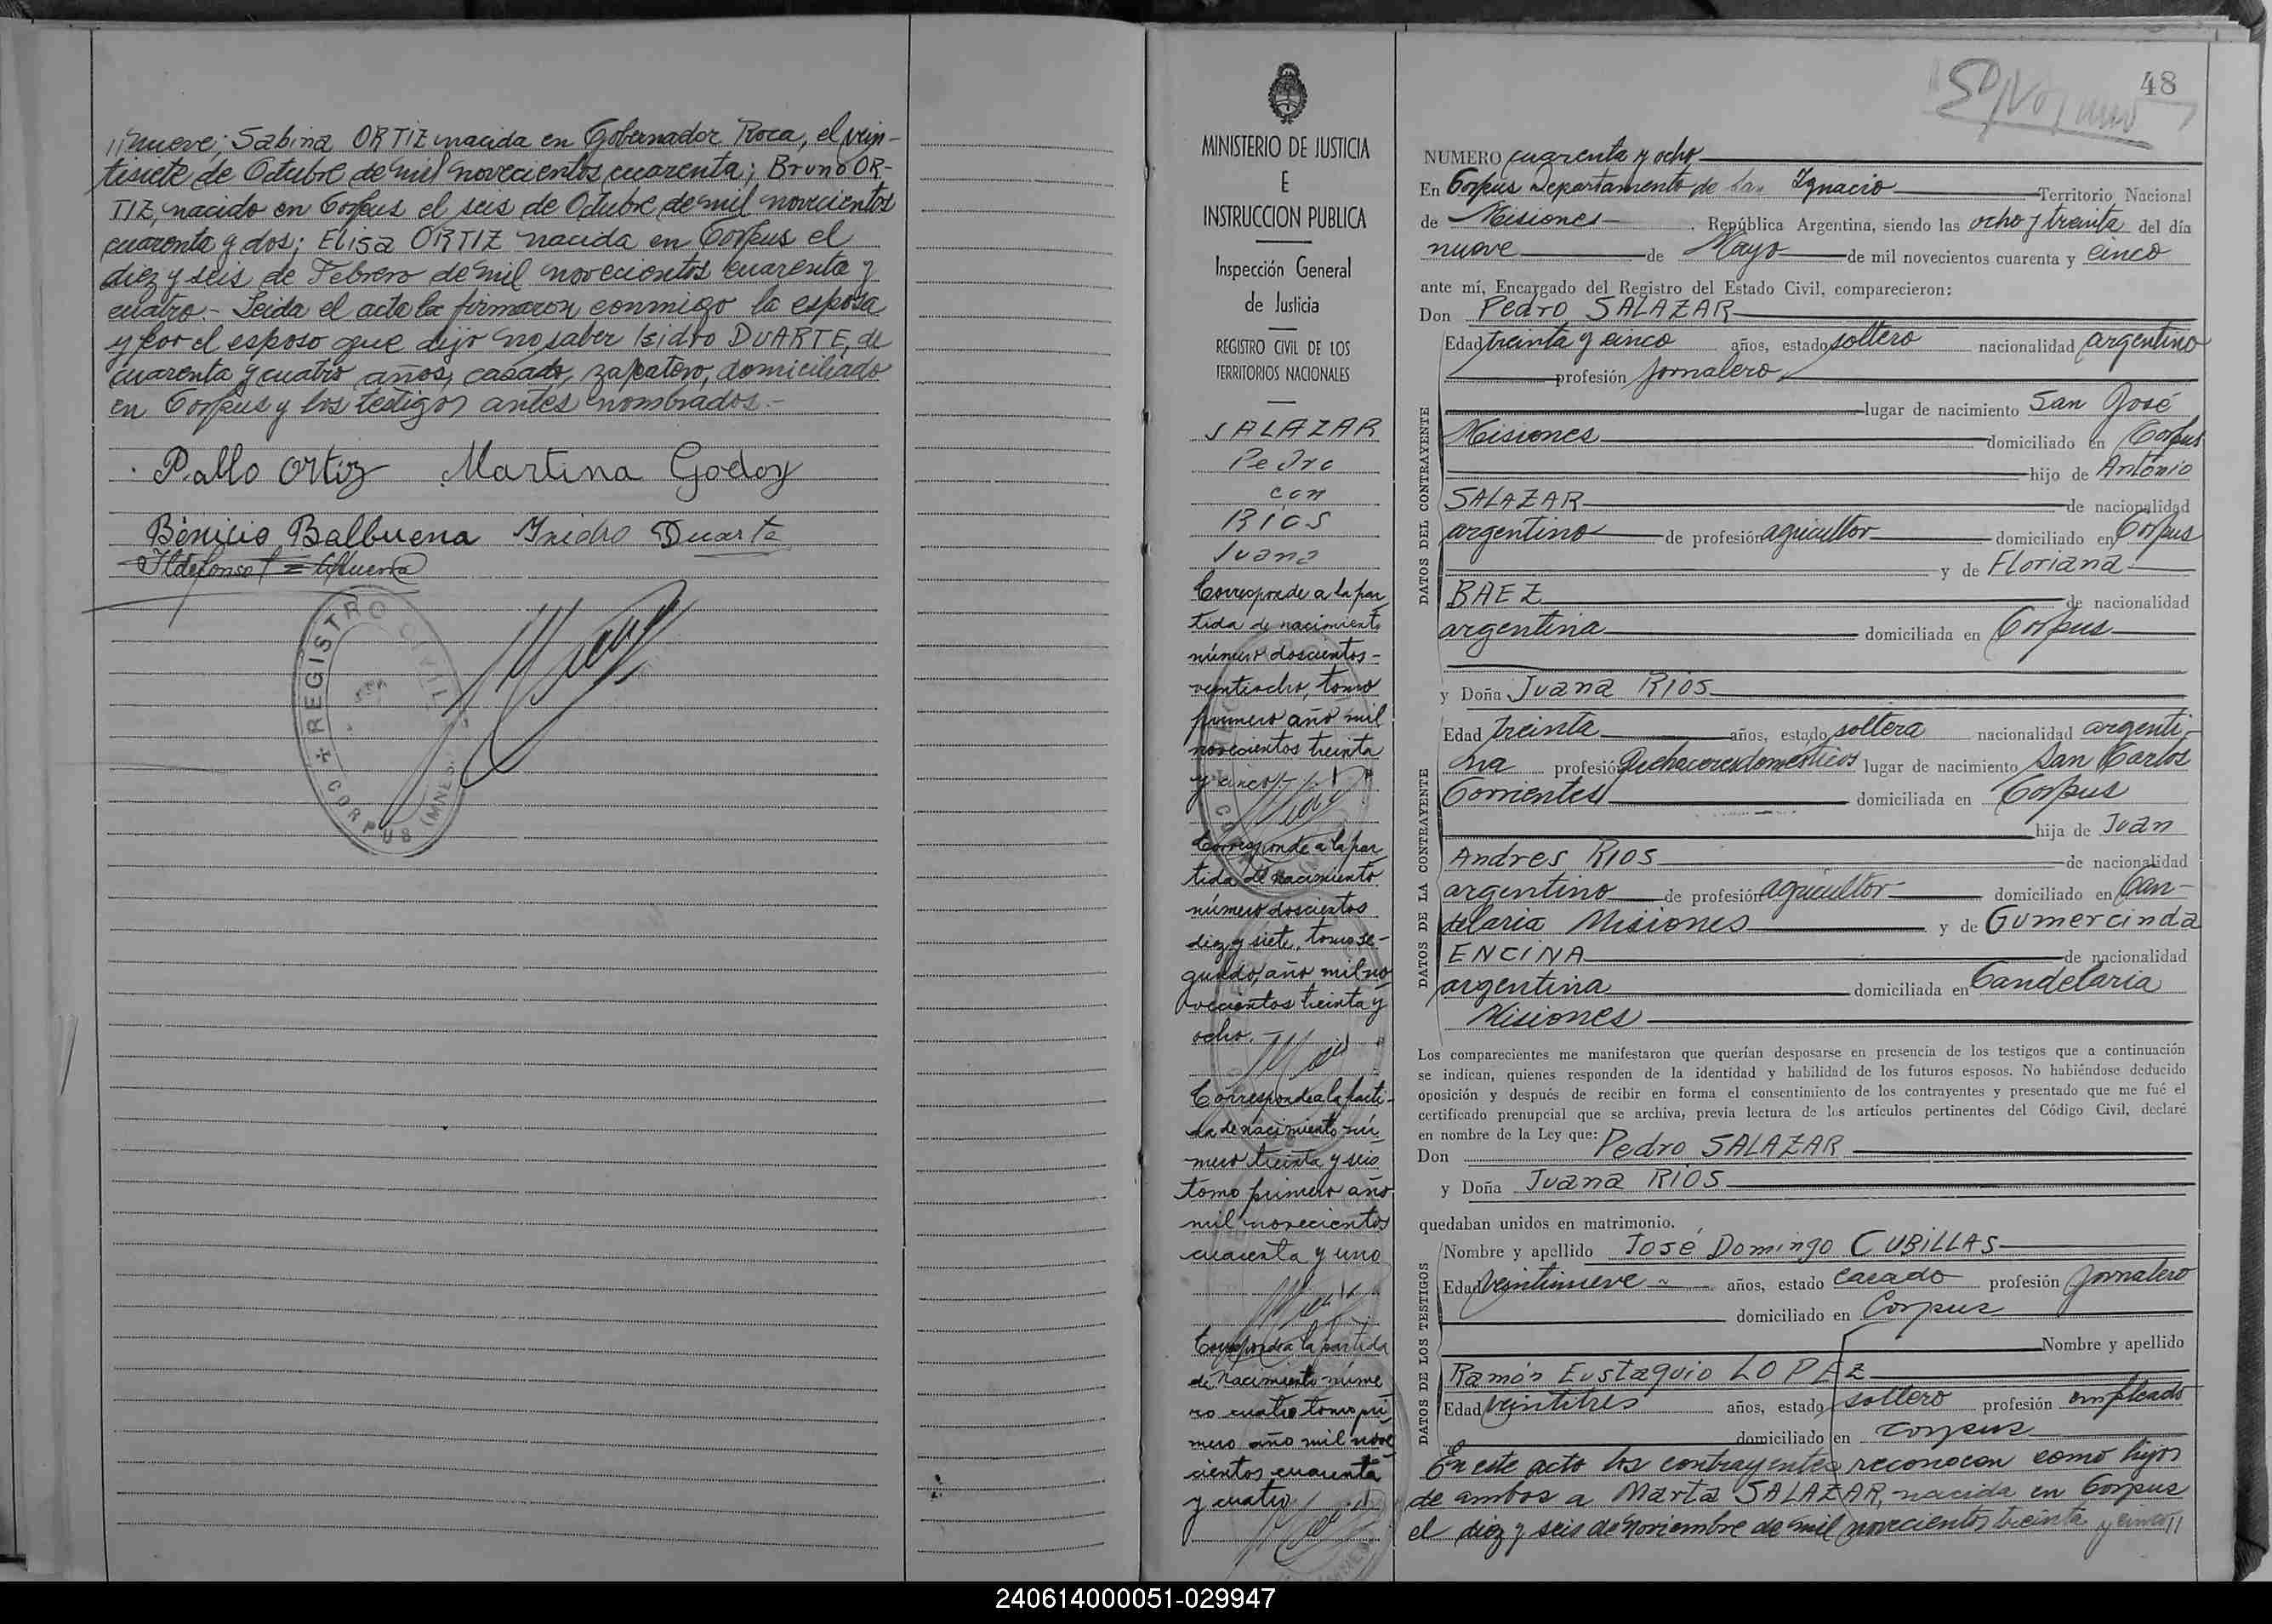 //nueve; Sabina ORTIZ nacida en Gobernador Roca, el vein-
tisiete de Octubre de mil novecientos cuarenta; Bruno OR-
TIZ, nacido en Corpus el seis de Octubre de mil novecientos
cuarenta y dos; Elisa ORTIZ nacida en Corpus el
diez y seis de Febrero de mil novecientos cuarenta y
cuatro.- Leida el acta la firmaron conmigo la esposa
y por el esposo que dijo no saber Isidro DUARTE, de
cuarenta y cuatro años, casado, zapatero, domiciliado
en Corpus y los testigos antes nombrados.-
Pablo Ortiz Martina Godoy
Bonicio Balbuena Isidro Duarte
Ildefonso
REGISTRO CIVIL
CORPUS (MNES.)
MINISTERIO DE JUSTICIA
E
INSTRUCCION PUBLICA
Inspección General
de Justicia
REGISTRO CIVIL DE LOS
TERRITORIOS NACIONALES
SALAZAR
Pedro
con
RIOS
Juana
Corresponde a la par
tida de nacimiento
número doscientos-
veintiocho, tomo
primero año mil
novecientos treinta
y cinco.-
Corresponde a la par
tida de nacimiento
número doscientos
diez y siete, tomo se-
gundo, año mil no
vecientos treinta y
ocho.
Corresponde a la parti-
da de nacimiento nú-
mero treinta y seis
tomo primero año
mil novecientos
cuarenta y uno
Corresponde a la partida
de Nacimiento núme
ro cuatro tomo pri
mero año mil nove
cientos cuarenta
y cuatro
48
NUMERO cuarenta y ocho
En Corpus Departamento de San Ignacio Territorio Nacional
de Misiones, República Argentina, siendo las ocho y treinta del día
nueve de Mayo de mil novecientos cuarenta y cinco
ante mí, Encargado del Registro del Estado Civil, comparecieron:
Don Pedro SALAZAR
DATOS DEL CONTRAYENTE
Edad treinta y cinco años, estado soltero nacionalidad argentino
profesión jornalero
lugar de nacimiento San José
Misiones domiciliado en Corpus
hijo de Antonio
SALAZAR de nacionalidad
argentino de profesión agricultor domiciliado en Corpus
y de Floriana
BAEZ de nacionalidad
argentina domiciliada en Corpus
y Doña Juana RIOS
DATOS DE LA CONTRAYENTE
Edad treinta años, estado soltera nacionalidad argenti-
na profesión quehaceres domesticos lugar de nacimiento San Carlos
Corrientes domiciliada en Corpus
hija de Juan
Andres RIOS de nacionalidad
argentino de profesión agricultor domiciliado en Can-
delaria Misiones y de Gumercinda
ENCINA de nacionalidad
argentina domiciliada en Candelaria
Misiones
Los comparecientes me manifestaron que querían desposarse en presencia de los testigos que a continuación
se indican, quienes responden de la identidad y habilidad de los futuros esposos. No habiéndose deducido
oposición y después de recibir en forma el consentimiento de los contrayentes y presentado que me fué el
certificado prenupcial que se archiva, previa lectura de los artículos pertinentes del Código Civil, declaré
en nombre de la Ley que:
Don Pedro SALAZAR
y Doña Juana RIOS
quedaban unidos en matrimonio.
DATOS DE LOS TESTIGOS
Nombre y apellido José Domingo CUBILLAS
Edad veintinueve años, estado casado profesión jornalero
domiciliado en Corpus
Nombre y apellido
Ramón Eustaquio LOPEZ
Edad veintitres años, estado soltero profesión empleado
domiciliado en Corpus
En este acto los contrayentes reconocen como hijos
de ambos a Marta SALAZAR, nacida en Corpus
el diez y seis de Noviembre de mil novecientos treinta y cinco//
240614000051-029947